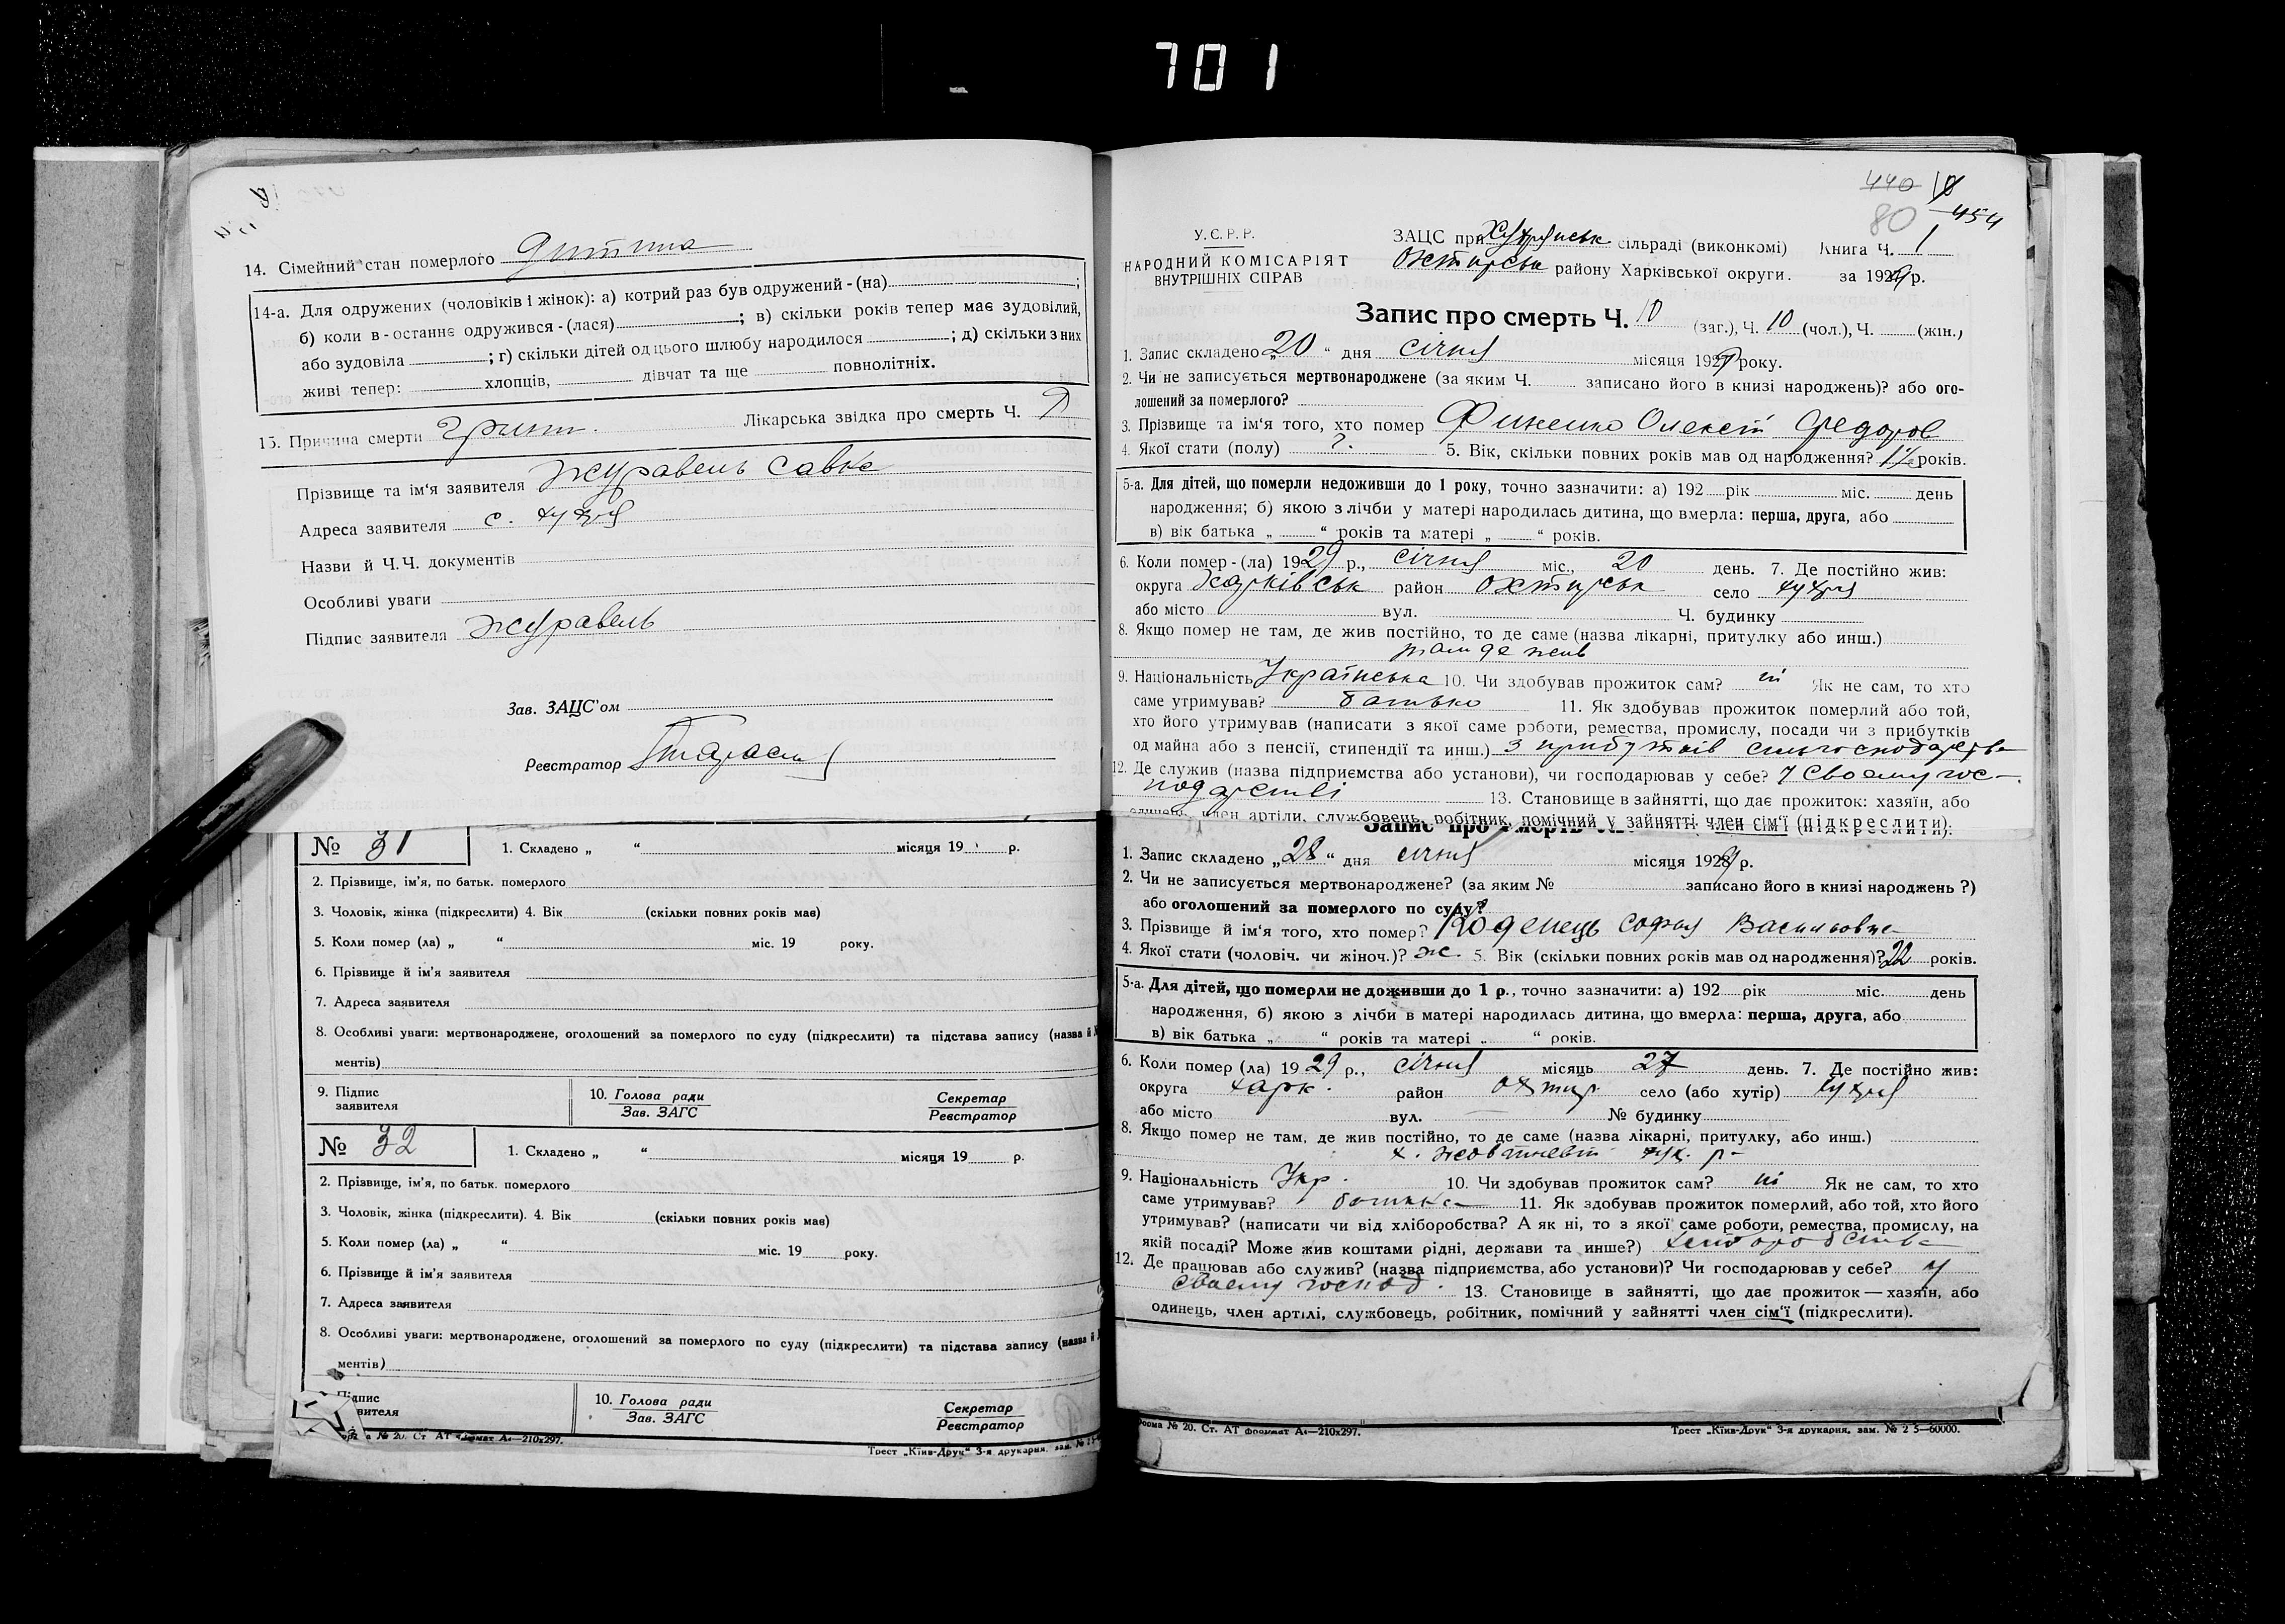 701
14. Сімейний стан померлого дитина
14-а. Для одружених (чоловіків і жінок): а) котрий раз був одружений - (на) ;
б) коли в - останнє одружився - (лася) ; в) скільки років тепер має зудовілий,
або зудовіла ; г) скільки дітей од цього шлюбу народилося ; д) скільки з них
живі тепер: хлопців, дівчат та ще повнолітніх.
15. Причина смерти Грип. Лікарська звідка про смерть Ч.
Прізвище та ім'я заявителя Журавель Савка
Адреса заявителя с. Хухря
Назви й Ч.Ч. документів
Особливі уваги
Підпис заявителя Журавель
Зав. ЗАЦС'ом
Реєстратор
№ 31 1. Складено „ “ місяця 19 р.
2. Прізвище, ім'я, по батьк. померлого
3. Чоловік, жінка (підкреслити) 4. Вік (скільки повних років мав)
5. Коли помер (ла) „ “ міс. 19 року.
6. Прізвище й ім'я заявителя
7. Адреса заявителя
8. Особливі уваги: мертвонароджене, оголошений за померлого по суду (підкреслити) та підстава запису (назва й
ментів)
9. Підпис заявителя 10. Голова ради Зав. ЗАГС Секретар Реєстратор
№ 32 1. Складено „ “ місяця 19 р.
2. Прізвище, ім'я, по батьк. померлого
3. Чоловік, жінка (підкреслити). 4. Вік (скільки повних років мав)
5. Коли помер (ла) „ “ міс. 19 року.
6. Прізвище й ім'я заявителя
7. Адреса заявителя
8. Особливі уваги: мертвонароджене, оголошений за померлого по суду (підкреслити) та підстава запису (назва й
ментів)
Підпис
10. Голова ради Зав. ЗАГС Секретар Реєстратор
№ 20. Ст. АТ формат А4—210х297.
Трест „Київ-Друк“ 3-я друкарня, зам. №
440
80 454
У.С.Р.Р.
НАРОДНИЙ КОМІСАРІЯТ
ВНУТРІШНІХ СПРАВ
ЗАЦС при Хухрянськ сільраді (виконкомі) Книга Ч. 1
Охтирськ району Харківської округи. за 1929 р.
Запис про смерть Ч. 10 (заг.), Ч. 10 (чол.), Ч. (жін.)
1. Запис складено „20“ дня січня місяця 1929 року.
2. Чи не записується мертвонароджене (за яким Ч. записано його в книзі народжень)? або ого-
лошений за померлого?
3. Прізвище та ім'я того, хто помер Финенко Олексій Федоров
4. Якої стати (полу) ч. 5. Вік, скільки повних років мав од народження? років.
5-а. Для дітей, що померли недоживши до 1 року, точно зазначити: а) 192 рік міс. день
народження; б) якою з лічби у матері народилась дитина, що вмерла: перша, друга, або
в) вік батька „ “ років та матері „ “ років.
6. Коли помер - (ла) 1929 р., січня міс., 20 день. 7. Де постійно жив:
округа Харківськ район Охтирськ село Хухря
або місто вул. Ч. будинку
8. Якщо помер не там, де жив постійно, то де саме (назва лікарні, притулку або инш.)
там де жив
9. Національність Українська 10. Чи здобував прожиток сам? ні Як не сам, то хто
саме утримував? батько 11. Як здобував прожиток померлий або той,
хто його утримував (написати з якої саме роботи, ремества, промислу, посади чи з прибутків
од майна або з пенсії, стипендії та инш.) з прибутків сільгосподарства
12. Де служив (назва підприємства або установи), чи господарював у себе? У своєму гос-
подарстві 13. Становище в зайнятті, що дає прожиток: хазяїн, або
одинець, член артіли, службовець, робітник, помічний у зайнятті член сім'ї (підкреслити).
Запис про смерть
1. Запис складено „28“ дня січня місяця 1929 р.
2. Чи не записується мертвонароджене? (за яким № записано його в книзі народжень ?)
або оголошений за померлого по суду?
3. Прізвище й ім'я того, хто помер? Софія Васильовна
4. Якої стати (чоловіч. чи жіноч.)? ж. 5. Вік (скільки повних років мав од народження)? 22 років.
5-а. Для дітей, що померли не доживши до 1 р., точно зазначити: а) 192 рік міс. день
народження, б) якою з лічби в матері народилась дитина, що вмерла: перша, друга, або
в) вік батька „ “ років та матері „ “ років.
6. Коли помер (ла) 1929 р., січня місяць 27 день. 7. Де постійно жив:
округа Харк. район Охтир. село (або хутір) Хухря
або місто вул. № будинку
8. Якщо помер не там, де жив постійно, то де саме (назва лікарні, притулку, або инш.)
9. Національність Укр. 10. Чи здобував прожиток сам? ні Як не сам, то хто
саме утримував? батько 11. Як здобував прожиток померлий, або той, хто його
утримував? (написати чи від хліборобства? А як ні, то з якої саме роботи, ремества, промислу, на
якій посаді? Може жив коштами рідні, держави та инше?) хліборобства
12. Де працював або служив? (назва підприємства, або установи)? Чи господарював у себе? У
своєму господ. 13. Становище в зайнятті, що дає прожиток — хазяїн, або
одинець, член артілі, службовець, робітник, помічний у зайнятті член сім'ї (підкреслити).
Форма № 20. Ст. АТ формат А4—210х297.
Трест „Київ-Друк“ 3-я друкарня, зам. № 2 5—60000.